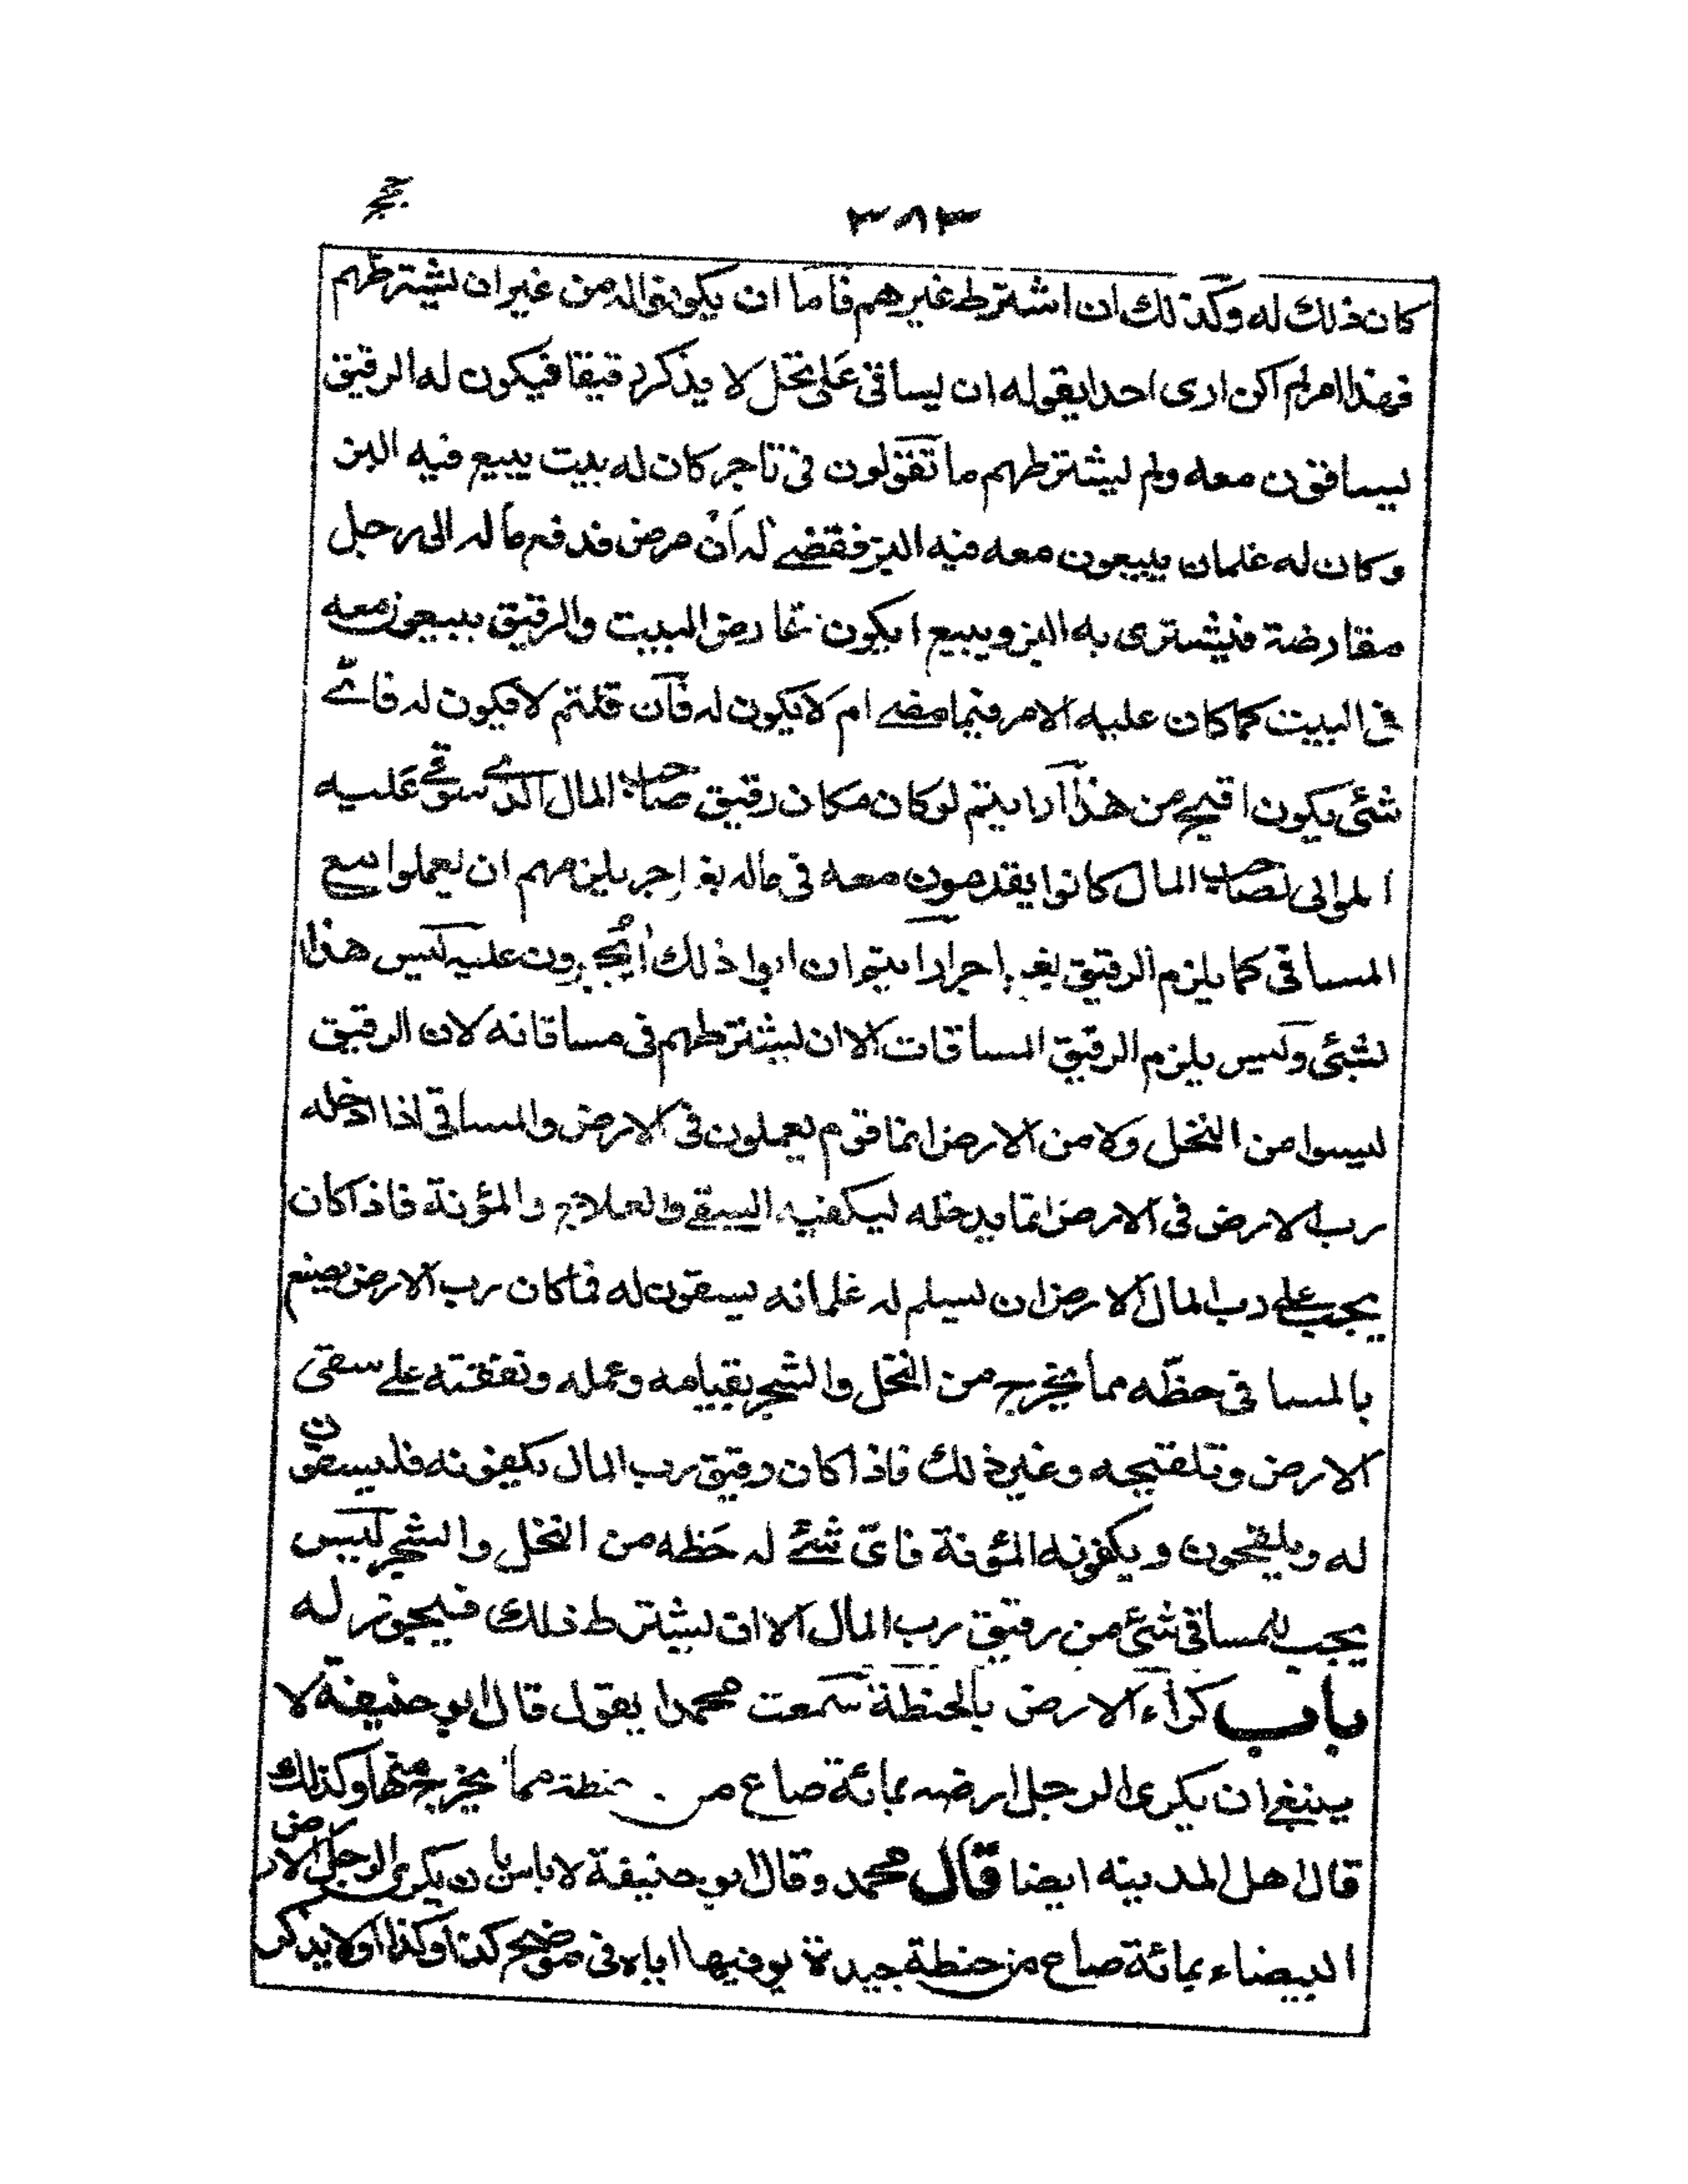 ٣٨٣
كان ذلك له وكذلك ان اشترط غيرهم فاما ان يكونوا له من غير ان يشترطهم
فهذا امر لم اكن ارى احدا يقوله ان يساقى على نخل لا يذكر رقيقا فيكون له الرقيق
يساقون معه ولم يشترطهم ما تقولون فى تاجر كان له بيت يبيع فيه البز
وكان له غلمان يبيعون معه فيه البز فقضى له ان مرض فدفع ماله الى رجل
مقارضة فيشترى به البز ويبيع ايكون للمقارض البيت والرقيق يبيعون معه
فى البيت كما كان عليه الامر فيما مضى ام لا يكون له فان قلتم لا يكون له فاى
شئ يكون اقبح من هذا ارايتم لو كان مكان رقيق صاحب المال الذى سوقى عليه
الموالى لصاحب المال كانوا يقدمون معه فى ماله بغير اجر يلزمهم ان يعملوا مع
المساقى كما يلزم الرقيق بغير اجر ارايتم ان ابوا ذلك ايجبرون عليه ليس هذا
بشئ وليس يلزم الرقيق المساقات الا ان يشترطهم فى مساقاته لان الرقيق
ليسوا من النخل ولا من الارض انما قوم يعملون فى الارض والمساقى اذا ادخله
رب الارض فى الارض انما يدخله ليكفيه السقى والعلاج والمؤنة فاذا كان
يجب على رب المال الارض ان يسلم له غلمانه يسقون له فما كان رب الارض يصنع
بالمساقى حظه مما يخرج من النخل والشجر بقيامه وعمله ونفقته على سقى
الارض وتلقيحه وغير ذلك فاذا كان رقيق رب المال يكفونه فليسقون
له ويلقحون ويكفونه المؤنة فاى شئ له حظه من النخل والشجر ليس
يجب للمساقى شئ من رقيق رب المال الا ان يشترط ذلك فيجوز له
باب كراء الارض بالحنطة سمعت محمدا يقول قال ابو حنيفة لا
ينبغى ان يكرى الرجل ارضه بمائة صاع من حنطة مما يخرج منها وكذلك
قال اهل المدينه ايضا قال محمد وقال ابو حنيفة لا باس بان يكرى الرجل الارض
البيضاء بمائة صاع من حنطة جيدة يوفيها اياه فى موضع كذا وكذا او لا يذكر